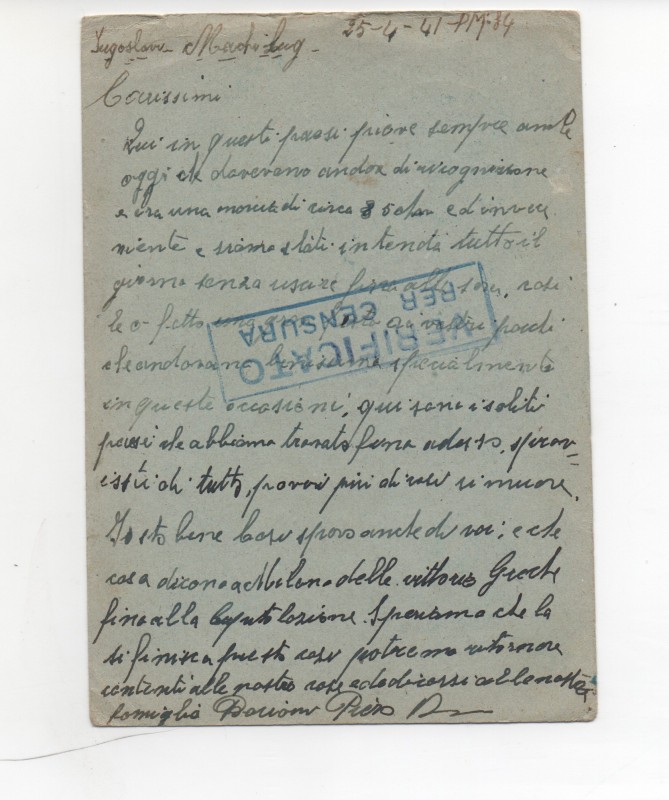 Jugoslavi 25-4-41-PM.84
Carissimi
Qui in questi paesi piove sempre anche
oggi che dovevano andar di ricognizione
era una marcia di circa 85 ed invece
niente e siamo stati in tenda tutto il
giorno senza usare fino alla sera, così
le o fatto ai vostri piedi
che andavano benissimo specialmente
in queste occasioni, qui sono i soliti
paesi che abbiamo trovato fino adesso, sprov-
isti di tutto, poveri più di così si muore.
Io sto bene così spero anche di voi, e che
cosa dicono a Milano delle vittorie Greche
fino alla Capitolazione. Speriamo che la
si finisca presto così potremo ritornare
contenti alle nostre case ad abbracciare le nostre
famiglia Piero
VERIFICATO
PER CENSURA